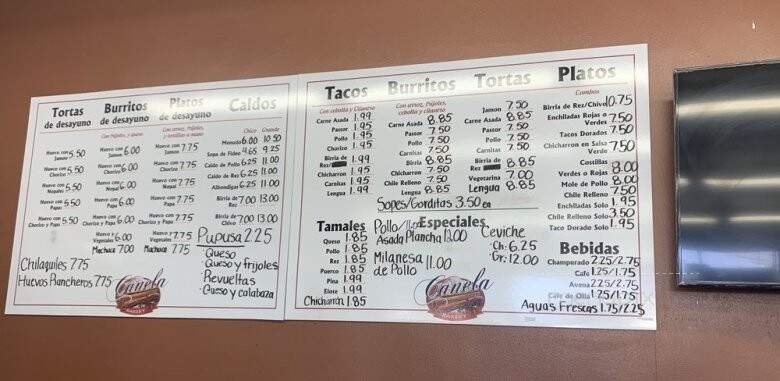 Tortas
de desayuno
Huevo con Jamon 5.50
Huevo con Chorizo 5.50
Huevo con Nopales 5.50
Huevo con Papa 5.50
Huevo con Chorizo y Papa 5.50
Chilaquiles 7.75
Huevos Rancheros 7.75
Burritos
de desayuno
Con frijoles, y queso
Huevo con Jamon 6.00
Huevo con Chorizo 6.00
Huevo con Nopal 6.00
Huevo con Papa 6.00
Huevo con Chorizo y Papa 6.00
Huevo con Vegetales 6.00
Machaca 7.00
Platos
de desayuno
Con arroz, frijoles,
y tortillas a mano
Huevo con Jamon 7.75
Huevo con Chorizo 7.75
Huevo con Nopal 7.75
Huevo con Papa 7.75
Huevo con Chorizo y Papa 7.75
Huevo con Vegetales 7.75
Machaca 7.75
Caldos
Chico Grande
Menudo 6.00 10.50
Sopa de Fideo 4.65 9.25
Caldo de Pollo 6.25 11.00
Caldo de Res 6.25 11.00
Albondigas 6.25 11.00
Birria de Res 7.00 13.00
Birria de Chivo 7.00 13.00
Pupusa 2.25
· Queso
· Queso y frijoles
· Revueltas
· Queso y calabaza
Canela
BAKERY
Tacos
Con cebolla y Cilantro
Carne Asada 1.99
Pastor 1.95
Pollo 1.95
Chorizo 1.95
Birria de Res/ 1.99
Chicharron 1.95
Carnitas 1.95
Lengua 1.99
Burritos
Con arroz, frijoles,
cebolla y cilantro
Carne Asada 8.85
Pastor 7.50
Pollo 7.50
Carnitas 7.50
Birria 8.85
Chicharron 7.50
Chile Relleno 7.50
Lengua 8.85
Sopes/Gorditas 3.50 ea
Tortas
Jamon 7.50
Carne Asada 8.85
Pastor 7.50
Pollo 7.50
Carnitas 7.50
Birria de Res 8.85
Vegetariana 7.00
Lengua 8.85
Platos
Combos
Birria de Rez/Chivo 10.75
Enchiladas Rojas o Verdes 7.50
Tacos Dorados 7.50
Chicharron en Salsa Verde 7.50
Costillas Verdes o Rojas 8.00
Mole de Pollo 8.00
Chile Relleno 7.50
Enchiladas Solo 1.95
Chile Relleno Solo 3.50
Taco Dorado Solo 1.95
Tamales
Queso 1.85
Pollo 1.85
Rez 1.85
Puerco 1.85
Pina 1.99
Elote 1.99
Chicharrón 1.85
Especiales
Asada Plancha
Milanesa de Pollo 11.00
Ceviche
· Ch: 6.25
· Gr: 12.00
Canela
BAKERY
Bebidas
Champurado 2.25/2.75
Cafe 1.25/1.75
Avena 2.25/2.75
Cafe de Olla 1.25/1.75
Aguas Frescas 1.75/2.25